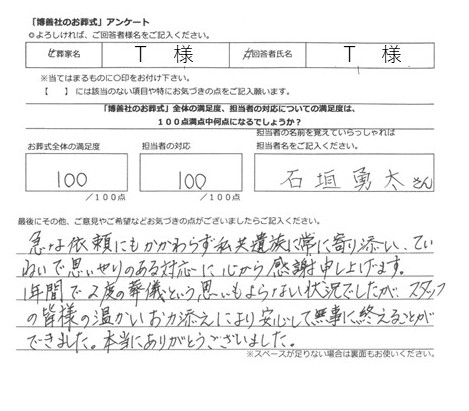 「博善社のお葬式」アンケート
◎よろしければ、ご回答者様名をご記入ください。
ご葬家名 T 様 ご回答者氏名 T 様
※当てはまるものに○印をお付け下さい。
【　　】には該当のない項目や特にお気づきの点をご記入願います。
「博善社のお葬式」全体の満足度、担当者の対応についての満足度は、
100点満点中何点になるでしょうか？
担当者の名前を覚えていらっしゃれば
お葬式全体の満足度 担当者の対応 担当者名をご記入ください。
100 100 石垣勇太さん
/100点 /100点
最後にその他、ご意見やご希望などお気づきの点がございましたらご記入ください。
急な依頼にもかかわらず私共遺族に常に寄り添い、てい
ねいで思いやりのある対応に心から感謝申し上げます。
1年間で2度の葬儀という思いもよらない状況でしたが、スタッフ
の皆様の温かいお力添えにより安心して無事に終えることが
できました。本当にありがとうございました。
※スペースが足りない場合は裏面もお使いください。